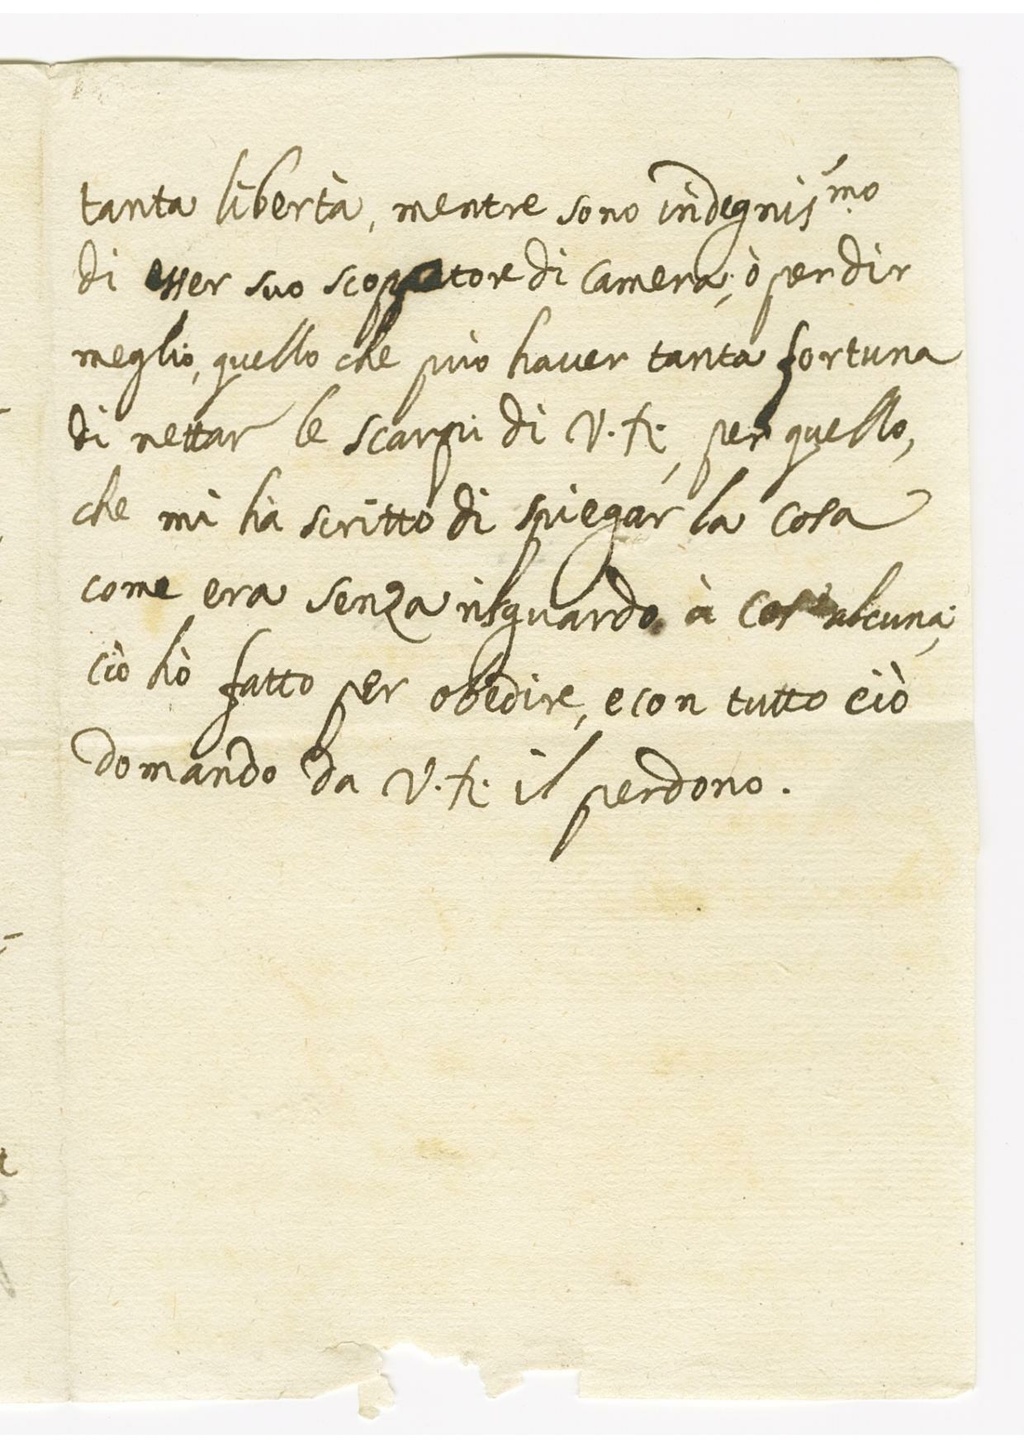 tanta libertà, mentre sono indegnis.mo
di esser suo scoppatore di Camera, ò per dir
meglio, quello che può haver tanta fortuna
di nettar le scarpi di V. R. per quello,
che mi hà scritto di spiegar la cosa
come era senza risguardo à cos' alcuna,
ciò hò fatto per obedire, e con tutto ciò
domando da V. R. il perdono.